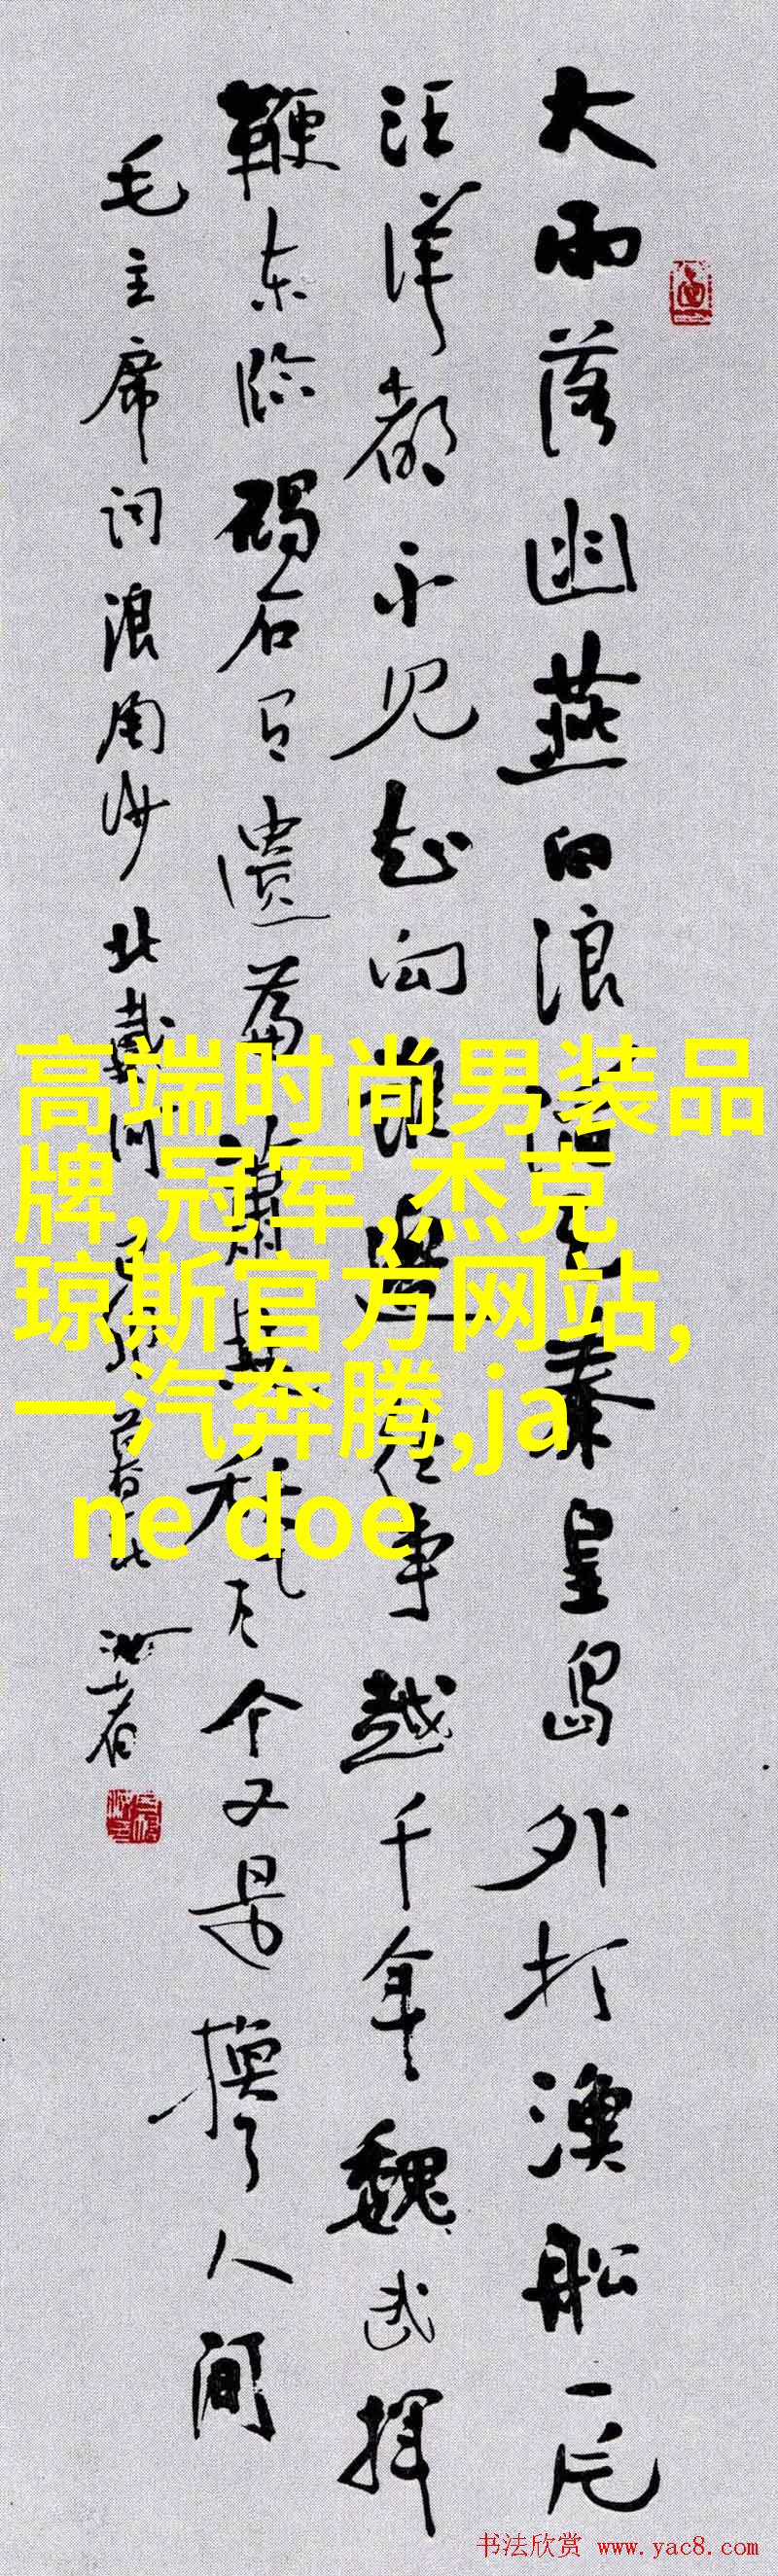 大雨落幽燕白浪滔天秦皇岛外打漁船一片
汪洋都不见知向誰邊往事越千年魏武揮
鞭东临碣石有遗篇萧瑟秋风今又是換了人间
毛主席词浪淘沙北戴河
高端时尚男装品
牌,冠军,杰克
琼斯官方网站,
一汽奔腾,ja
ne doe
书法欣赏 www.yac8.com